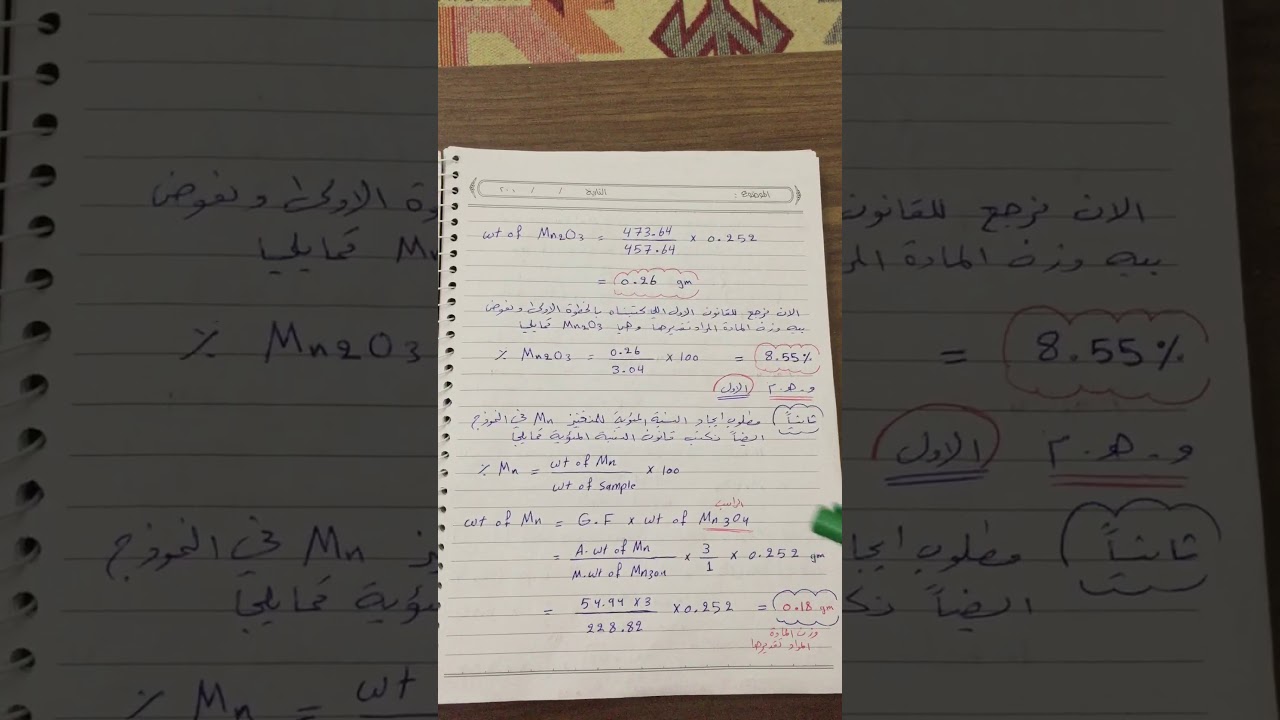 الموضوع : التاريخ / / ٢٠٠
wt of Mn2O3 = 473.64 / 457.64 x 0.252
= 0.26 gm
الان نرجع للقانون الاول اللي كتبناه بالخطوة الاولى ونعوض
بيه وزن المادة المراد تقديرها وهي Mn2O3 كمايلي
% Mn2O3 = 0.26 / 3.04 x 100 = 8.55%
و.هـ.م الاول
ثانياً مطلوب ايجاد النسبة المئوية للمنغنيز Mn في النموذج
ايضاً نكتب قانون النسبة المئوية كمايلي
% Mn = wt of Mn / wt of sample x 100
الراسب
wt of Mn = G.F x wt of Mn3O4
= A.wt of Mn / M.wt of Mn3O4 x 3/1 x 0.252 gm
= 54.94 x 3 / 228.82 x 0.252 = 0.18 gm
وزن المادة
المراد تقديرها